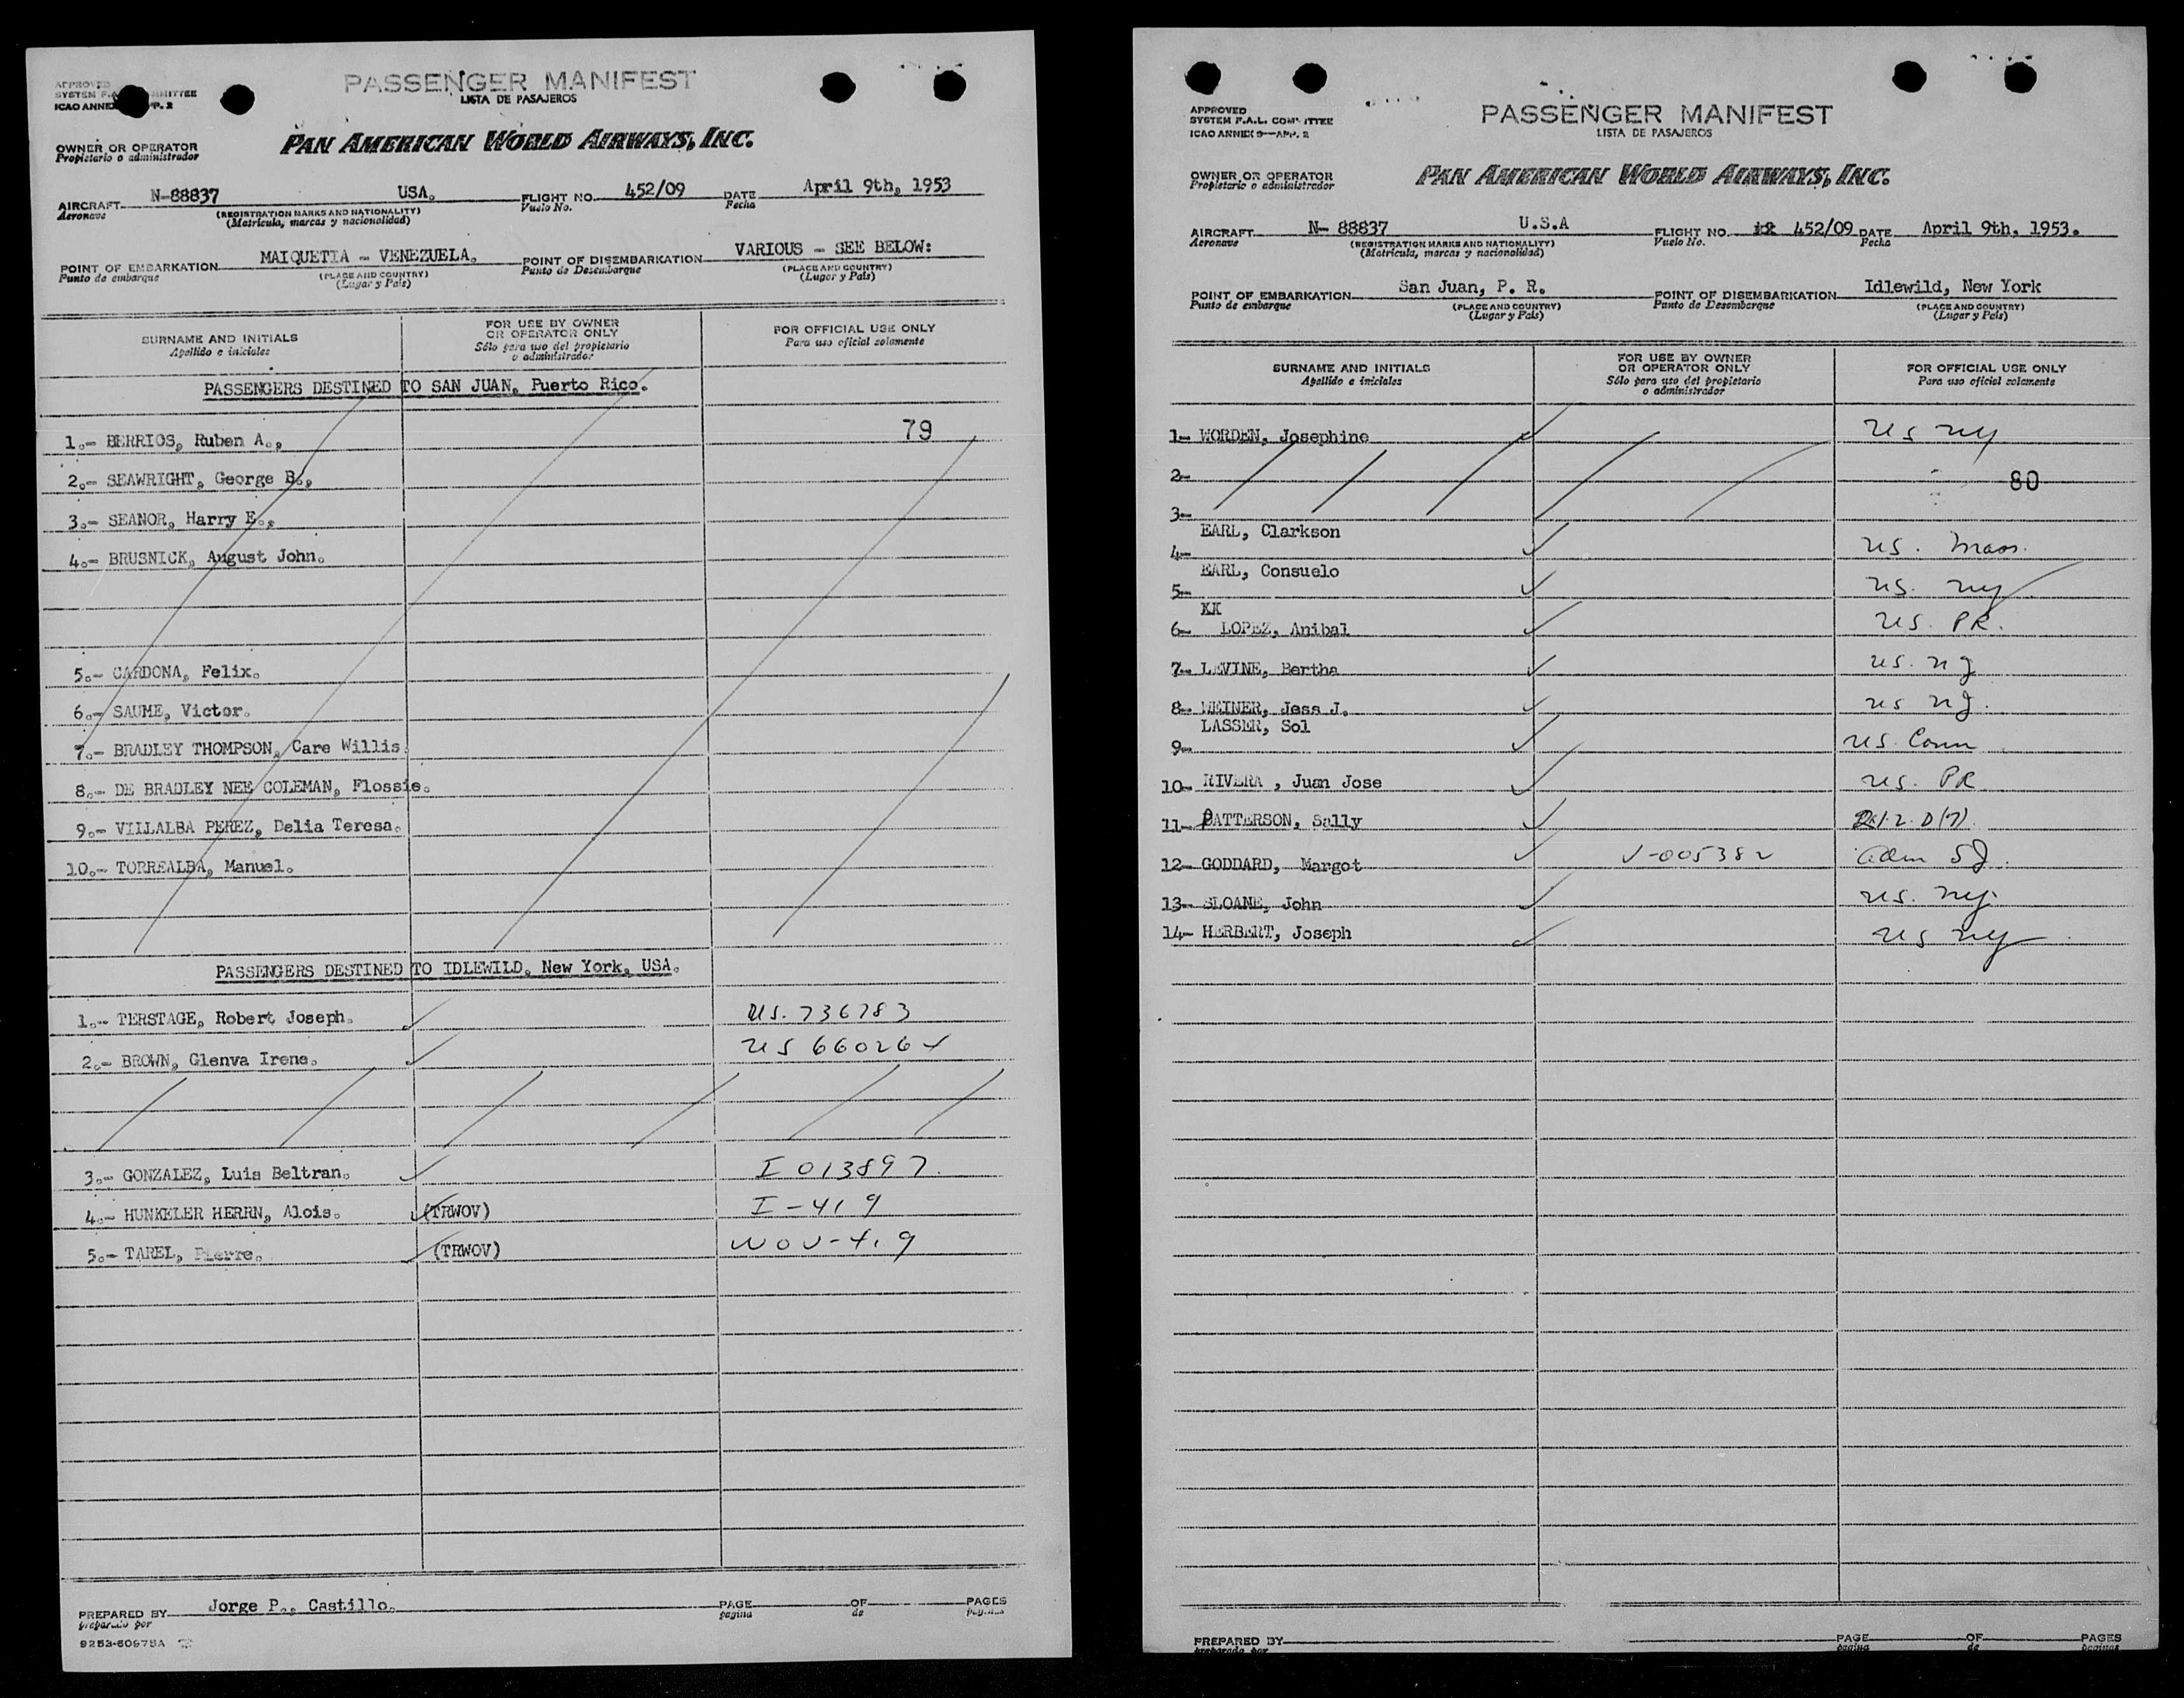 APPROVED
SYSTEM F.A. MMITTEE
ICAO ANNEX P. 2
PASSENGER MANIFEST
LISTA DE PASAJEROS
OWNER OR OPERATOR
Propietario o administrador
PAN AMERICAN WORLD AIRWAYS, INC.
AIRCRAFT N-88837 USA. FLIGHT NO. 452/09 DATE April 9th, 1953
Aeronave (REGISTRATION MARKS AND NATIONALITY) Vuelo No. Fecha
(Matrícula, marcas y nacionalidad)
POINT OF EMBARKATION MAIQUETIA - VENEZUELA. POINT OF DISEMBARKATION VARIOUS - SEE BELOW:
Punto de embarque (PLACE AND COUNTRY) Punto de Desembarque (PLACE AND COUNTRY)
(Lugar y País) (Lugar y País)
SURNAME AND INITIALS FOR USE BY OWNER OR OPERATOR ONLY FOR OFFICIAL USE ONLY
Apellido e iniciales Sólo para uso del propietario o administrador Para uso oficial solamente
PASSENGERS DESTINED TO SAN JUAN, Puerto Rico.
1.- BERRIOS, Ruben A., 79
2.- SEAWRIGHT, George B.,
3.- SEANOR, Harry E.,
4.- BRUSNICK, August John.
5.- CARDONA, Felix.
6.- SAUME, Victor.
7.- BRADLEY THOMPSON, Care Willis.
8.- DE BRADLEY NEE COLEMAN, Flossie.
9.- VILLALBA PEREZ, Delia Teresa.
10.- TORREALBA, Manuel.
PASSENGERS DESTINED TO IDLEWILD, New York, USA.
1.- TERSTAGE, Robert Joseph. US. 736783
2.- BROWN, Glenva Irene. US 66026
3.- GONZALEZ, Luis Beltran. I 013897
4.- HUNKELER HERRN, Alois. (TRWOV) I-419
5.- TAREL, Pierre. (TRWOV) WOV-419
PREPARED BY Jorge P., Castillo. PAGE OF PAGES
preparado por pagina de paginas
9253-60975A
APPROVED
SYSTEM F.A.L. COMMITTEE
ICAO ANNEX 9—APP. 2
PASSENGER MANIFEST
LISTA DE PASAJEROS
OWNER OR OPERATOR
Propietario o administrador
PAN AMERICAN WORLD AIRWAYS, INC.
AIRCRAFT N- 88837 U.S.A FLIGHT NO. 452/09 DATE April 9th, 1953.
Aeronave (REGISTRATION MARKS AND NATIONALITY) Vuelo No. Fecha
(Matrícula, marcas y nacionalidad)
POINT OF EMBARKATION San Juan, P. R. POINT OF DISEMBARKATION Idlewild, New York
Punto de embarque (PLACE AND COUNTRY) Punto de Desembarque (PLACE AND COUNTRY)
(Lugar y País) (Lugar y País)
SURNAME AND INITIALS FOR USE BY OWNER OR OPERATOR ONLY FOR OFFICIAL USE ONLY
Apellido e iniciales Sólo para uso del propietario o administrador Para uso oficial solamente
1- WORDEN, Josephine US NY
2- 80
3-
4- EARL, Clarkson US. Mass.
5- EARL, Consuelo US. NY
6- KK LOPEZ, Anibal US. PR.
7- LEVINE, Bertha US. NJ
8- WEINER, Jess J. US NJ.
9- LASSER, Sol US. Conn
10- RIVERA , Juan Jose US. PR
11- PATTERSON, Sally
12- GODDARD, Margot V-005382 adm SJ.
13- SLOANE, John US. NY.
14- HERBERT, Joseph US NY
PREPARED BY PAGE OF PAGES
preparado por pagina de paginas